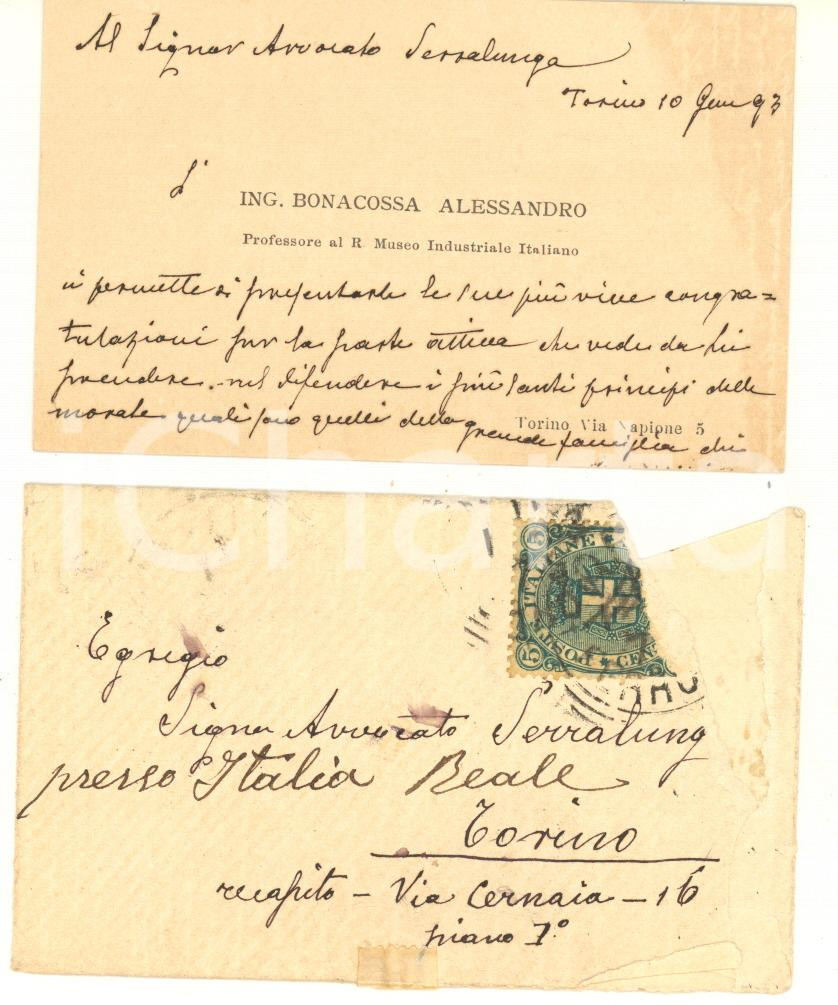 Al Signor Avvocato Serralunga
Torino 10 Gen 93
L'
ING. BONACOSSA ALESSANDRO
Professore al R. Museo Industriale Italiano
si permette di presentarle le sue più vive congra=
tulazioni per la parte attiva che vede da Lei
prendere nel difendere i più santi principi della
morale quali sono quelli della grande famiglia che
Torino Via Napione 5
iCharta
5 5
POSTE ITALIANE
CEN
Egregio
Signor Avvocato Serralung
presso Italia Reale
Torino
recapito - Via Cernaia - 16
piano 1°